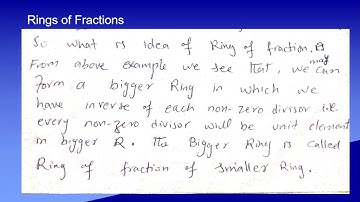 Rings of Fractions
So what is idea of Ring of fraction.
From above example we see that, we can may
form a bigger Ring in which we
have inverse of each non-zero divisor i.e.
every non-zero divisor will be unit element
in bigger R. The Bigger Ring is called
Ring of fraction of smaller Ring.